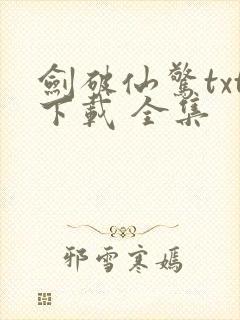 劍破仙驚txt
下載 全集
邪雪寒嫣